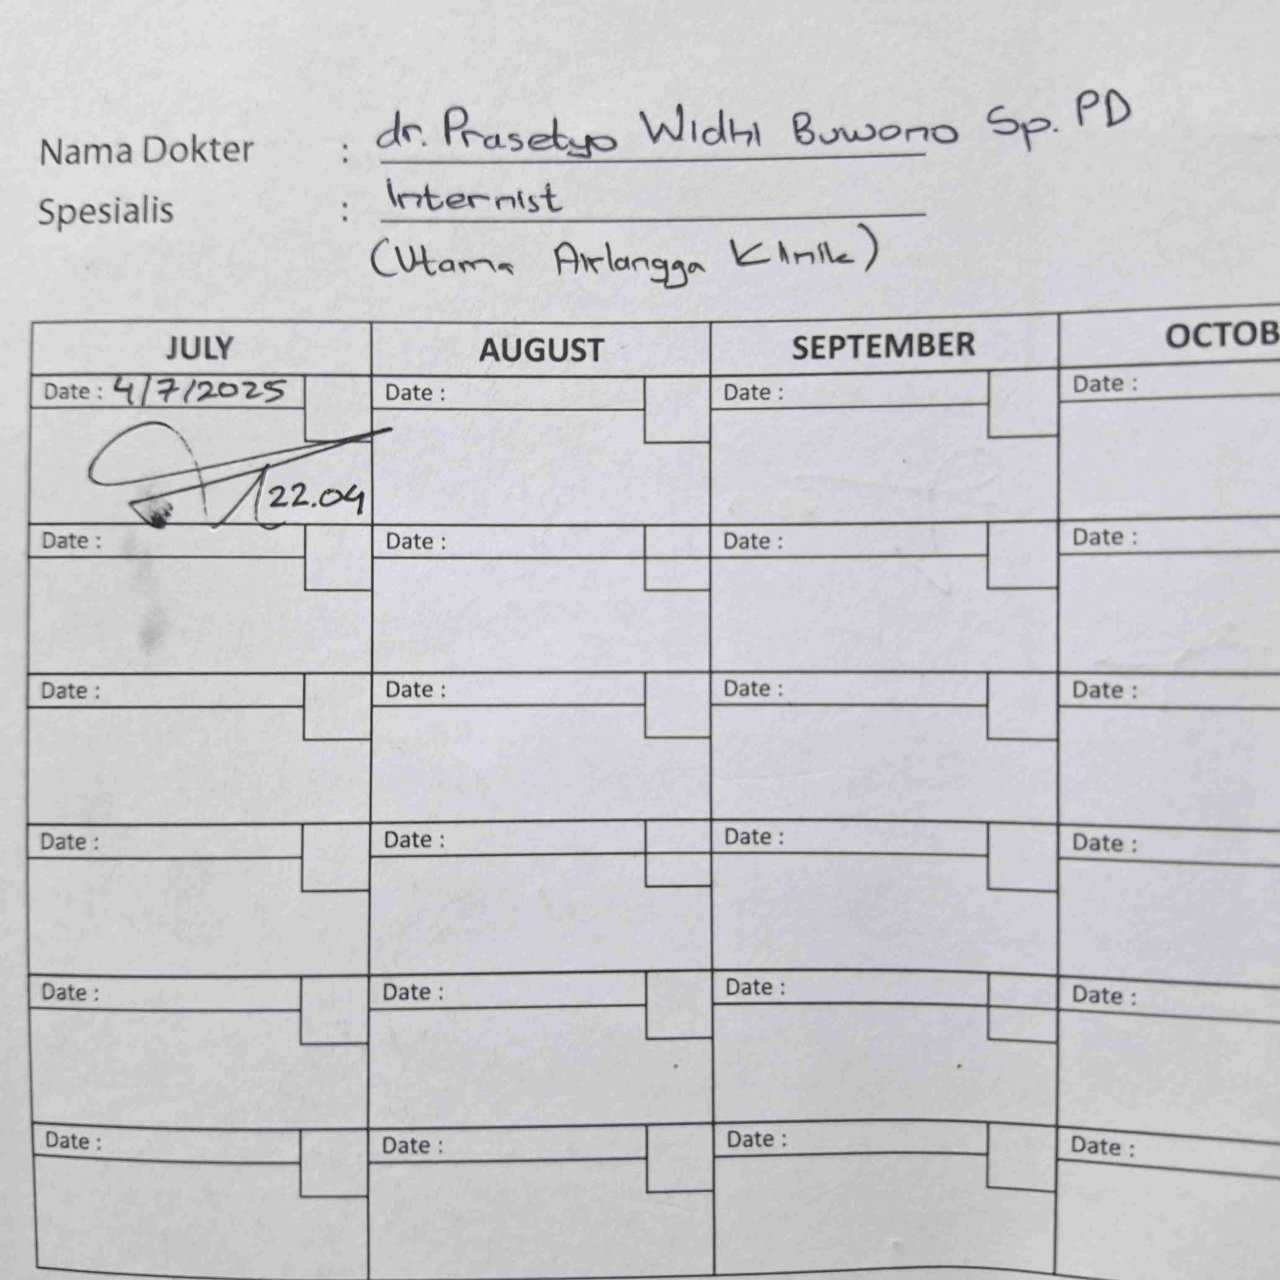 Nama Dokter : dr. Prasetyo Widhi Buwono Sp. PD
Spesialis : Internist
(Utama Airlangga Klinik)
JULY AUGUST SEPTEMBER OCTOB
Date : 4/7/2025 Date : Date : Date :
22.04
Date : Date : Date : Date :
Date : Date : Date : Date :
Date : Date : Date : Date :
Date : Date : Date : Date :
Date : Date : Date : Date :